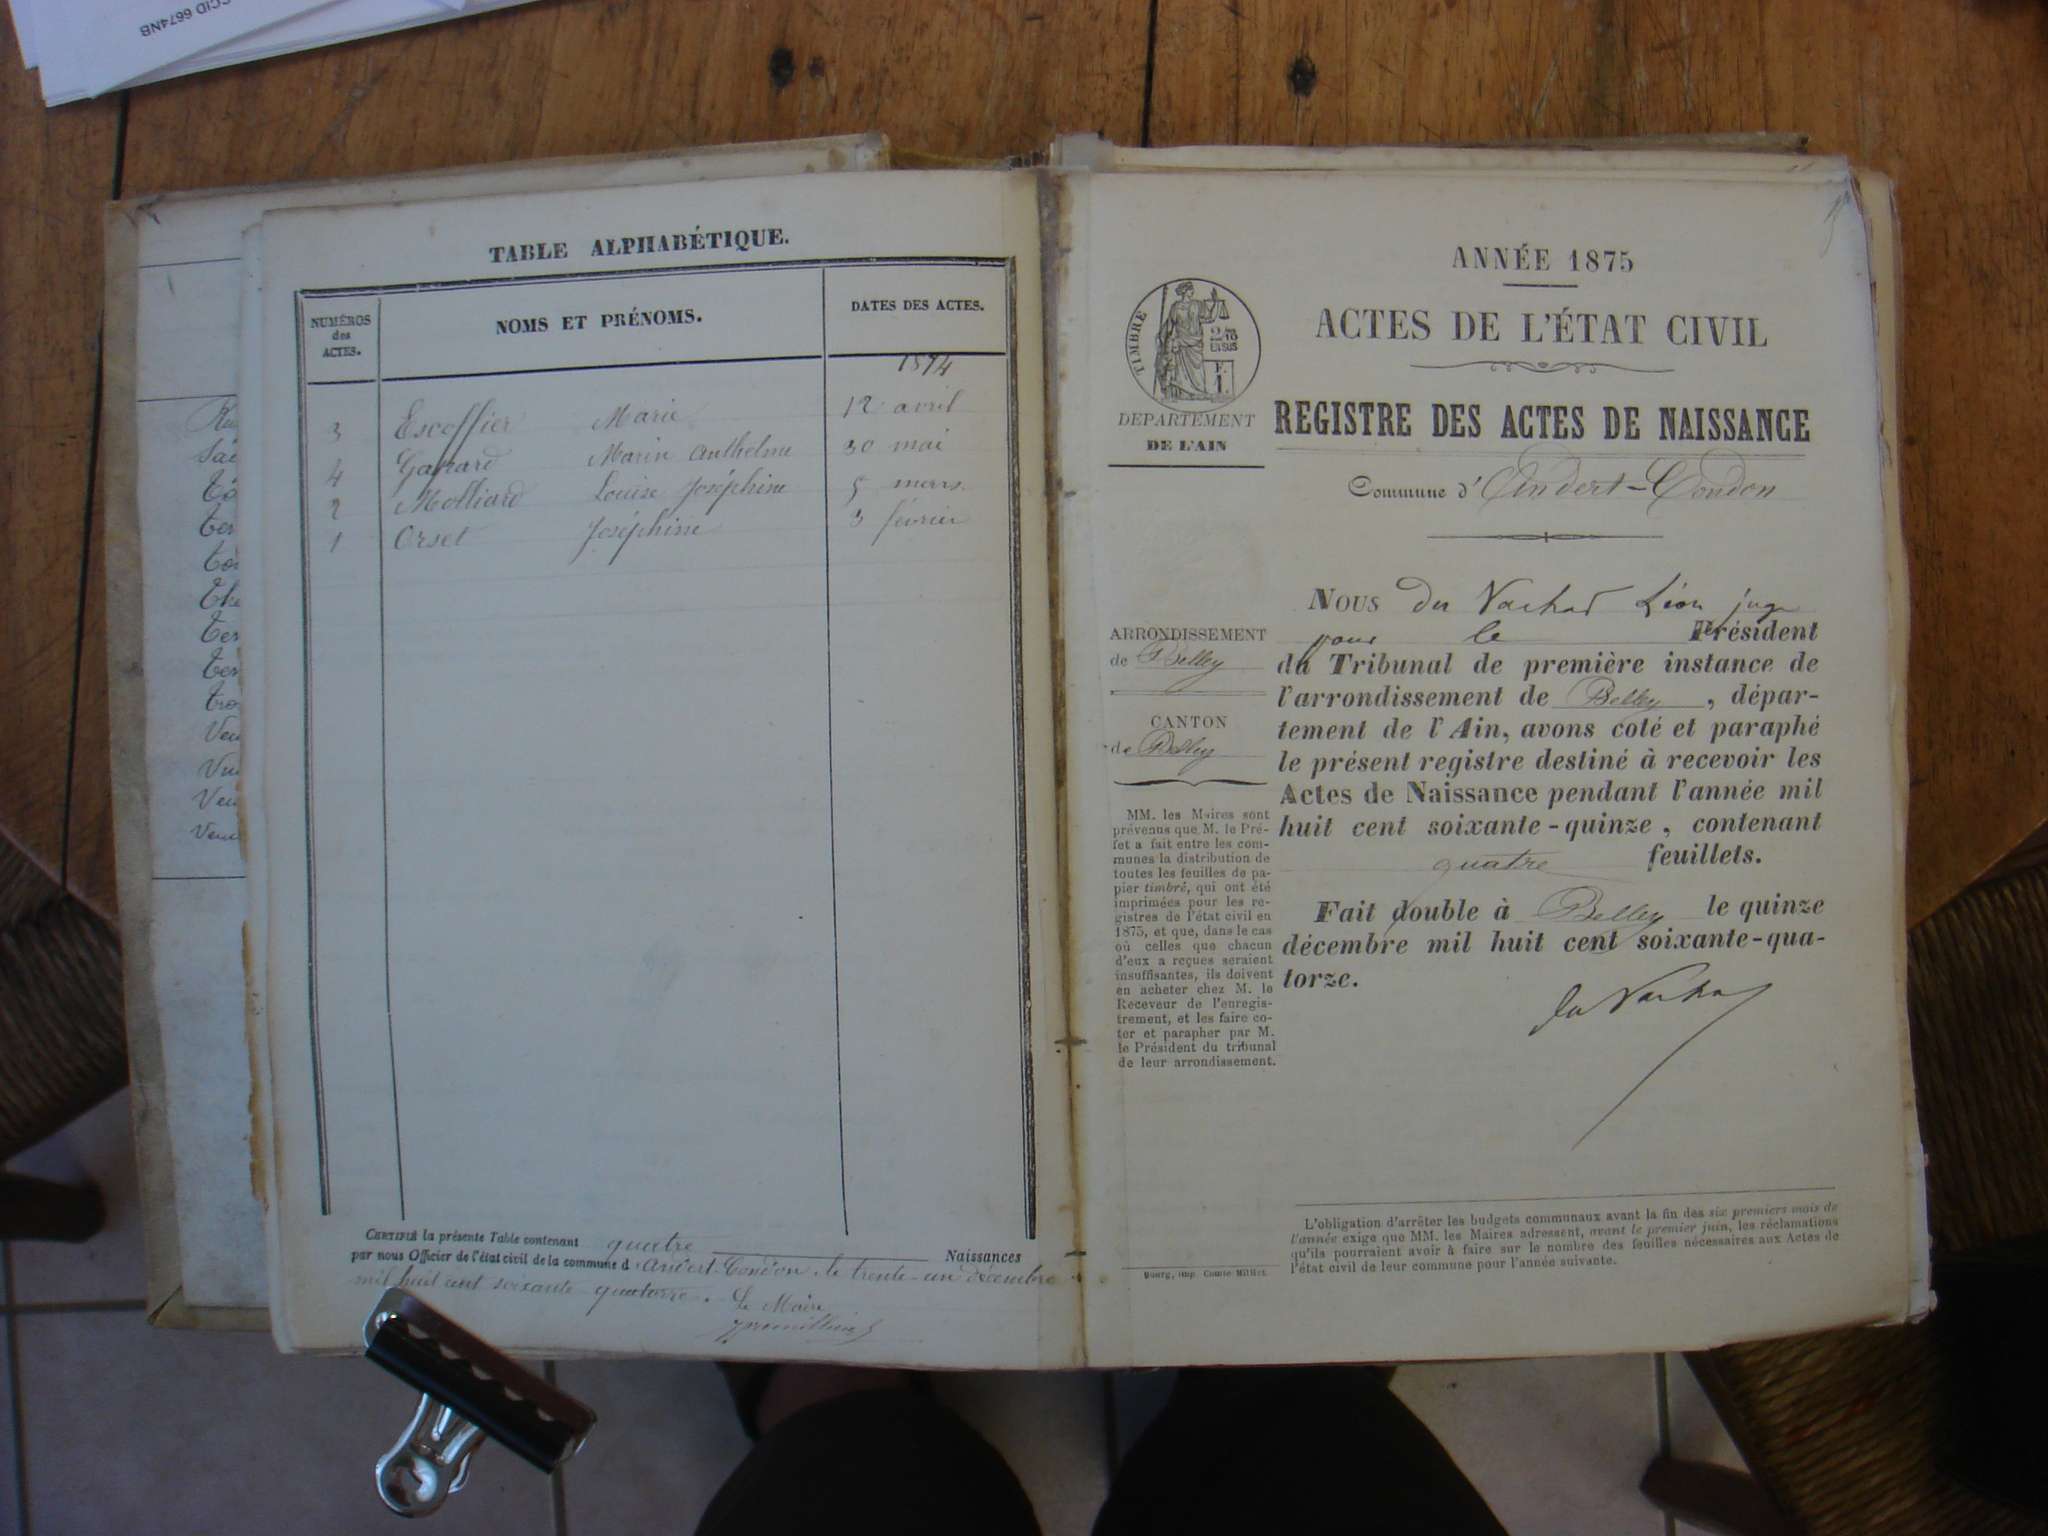 CCID 6674NB
TABLE ALPHABÉTIQUE.
NUMÉROS
des
ACTES.
NOMS ET PRÉNOMS.
DATES DES ACTES.
1874
3 Escoffier Marie 12 avril
4 Marin Anthelme 30 mai
2 Molliard Louise Joséphine 5 mars
1 Orset Joséphine 3 février
CERTIFIÉ la présente Table contenant quatre Naissances
par nous Officier de l'état civil de la commune d'Andert-Condon, le trente-un décembre
mil huit cent soixante quatorze. Le Maire
ANNÉE 1875
ACTES DE L'ÉTAT CIVIL
REGISTRE DES ACTES DE NAISSANCE
Commune d'Andert-Condon
TIMBRE
2/10
EN SUS
F.
1.
DEPARTEMENT
DE L'AIN
ARRONDISSEMENT
de Belley
CANTON
de Belley
MM. les Maires sont
prévenus que M. le Pré-
fet a fait entre les com-
munes la distribution de
toutes les feuilles de pa-
pier timbré, qui ont été
imprimées pour les re-
gistres de l'état civil en
1875, et que, dans le cas
où celles que chacun
d'eux a reçues seraient
insuffisantes, ils doivent
en acheter chez M. le
Receveur de l'enregis-
trement, et les faire co-
ter et parapher par M.
le Président du tribunal
de leur arrondissement.
NOUS du Vachat Léon juge
pour le Président
du Tribunal de première instance de
l'arrondissement de Belley, dépar-
tement de l'Ain, avons coté et paraphé
le présent registre destiné à recevoir les
Actes de Naissance pendant l'année mil
huit cent soixante-quinze, contenant
quatre feuillets.
Fait double à Belley le quinze
décembre mil huit cent soixante-qua-
torze.
du Vachat
L'obligation d'arrêter les budgets communaux avant la fin des six premiers mois de
l'année exige que MM. les Maires adressent, avant le premier juin, les réclamations
qu'ils pourraient avoir à faire sur le nombre des feuilles nécessaires aux Actes de
l'état civil de leur commune pour l'année suivante.
Bourg, imp. Comte-Milliet.